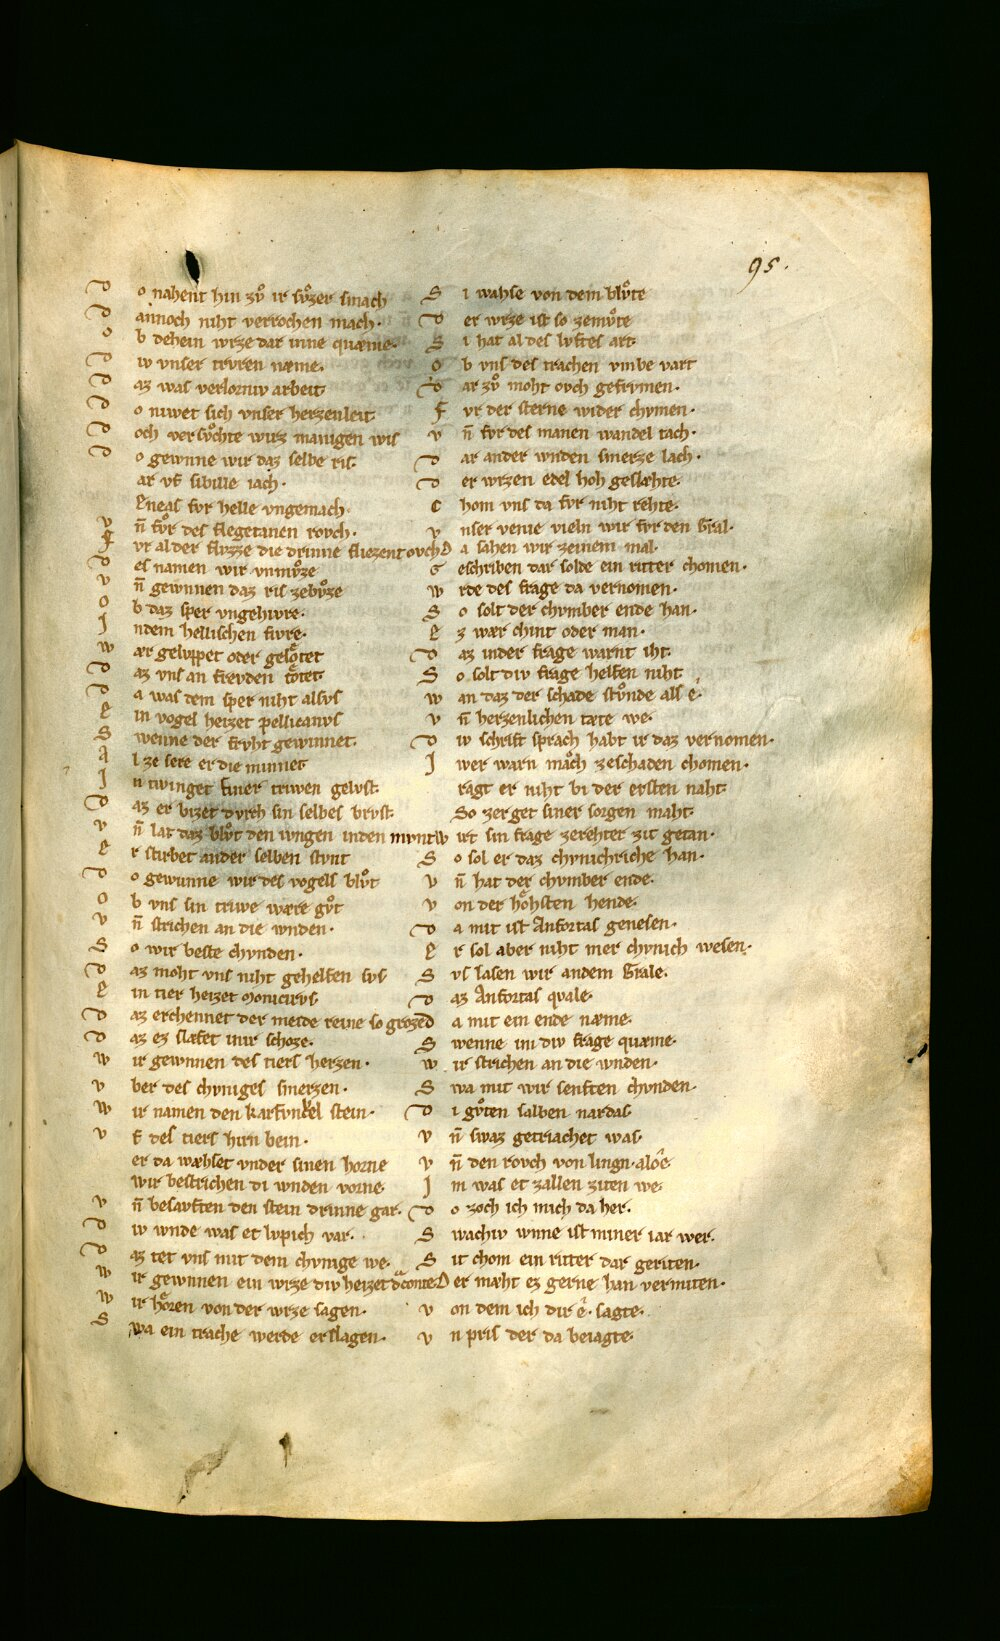 95.
D o nahent hin zv̊ ir sv̊zer smach
D annoch niht verrochen mach.
O b dehein wrze dar inne quæme.
D iv vnser trvren næme.
D az was verlorniv arbeit
D o niwet sich vnser herzenleit
D och versv̊chte wirz manigen wis
D o gewnne wir daz selbe ris.
ar vf sibille iach.
Eneas fvr helle vngemach.
v n̄ fv̊r des flegetanen rovch.
F vr al der flvzze die drinne fliezent ovch
D es namen wir vnmv̊ze
v n̄ gewnnen daz ris zebv̊ze
O b daz sper vngehivre.
J ndem hellischen fivre.
w ær gelvppet oder gelôtet
D az vns an frevden tôtet.
D a was dem sper niht alsvs
E in vogel heizet pellicanvs
S wenne der frvht gewinnet.
A l ze sere er die minnet
J n twinget siner triwen gelvst.
D az er bizet dvrch sin selbes brvst.
v n̄ lat daz blv̊t den ivngen inden mvnt
E r stirbet ander selben stvnt
D o gewunne wir des vogels blv̊t
O b vns sin triwe wære gv̊t
v n̄ strichen an die wnden.
S o wir beste chvnden.
D az moht vns niht gehelfen svs
E in tier heizet monicirvs.
D az erchennet der meide reine so groze
D az ez slæfet inir schoze.
w ir gewnnen des tiers herzen.
v ber des chvniges smerzen.
w ir namen den karfvnkel stein.
v f des tiers hirn bein.
er da wæhset vnder sinen horne
wir bestrichen di wnden vorne
v n̄ besavften den stein drinne gar.
D iv wnde was et lvpich var.
D az tet vns mit dem chvnige we.
w ir gewnnen ein wrze div heizet dͣconte
w ir hôren von der wrze sagen.
S wa ein trache werde erslagen.
S i wahse von dem blv̊te
D er wrze ist so zemv̊te
S i hat al des lvftes art
O b vns des trachen vmbe vart
D ar zv̊ moht ovch gefrvmen.
F vr der sterne wider chvmen.
v n̄ fvr des manen wandel tach.
D ar ander wnden smerze lach.
D er wrzen edel hoh geslæhte.
C hom vns da fvr niht rehte.
v nser venie vieln wir fvr den Gral.
D a sahen wir zeinem mal.
G eschriben dar solde ein ritter chomen.
w rde des frage da vernomen.
S o solt der chvmber ende han.
E z wær chint oder man.
D az inder frage warnt iht.
S o solt div frage helfen niht
w an daz der schade stv̊nde als ê.
v n̄ herzenlichen tæte we.
D iv schrift sprach habt ir daz vernomen.
J wer warn mach zeschaden chomen.
ragt er niht bi der ersten naht.
So zerget siner sorgen maht.
w irt sin frage zerehter zit getan.
S o sol er daz chvnichriche han.
v n̄ hat der chvmber ende.
v on der hôhsten hende.
D a mit ist Anfortas genesen.
E r sol aber niht mer chvnich wesen.
S vs lasen wir andem Grale.
D az Anfortas qvale.
D a mit ein ende næme.
S wenne im div frage quæme.
w ir strichen an die wnden.
S wa mit wir senften chvnden.
D i gv̊ten salben nardas
v n̄ swaz getriachet was.
v n̄ den rovch von lingn.alôê
J m was et zallen ziten we.
D o zoch ich mich da her.
S wachiv wnne ist miner iar wer.
S it chom ein ritter dar geriten.
D er mæht ez gerne han vermiten.
v on dem ich dir ê. sagte.
v n pris der da beiagte.